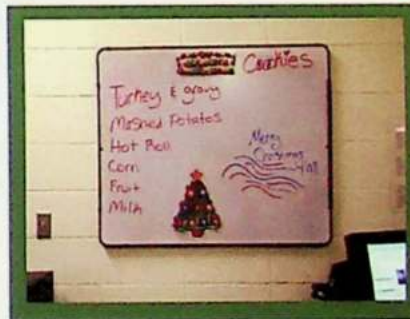 Cookies
Turkey & gravy
Mashed Potatoes
Hot Roll
Corn
Fruit
Milk
Merry
Christmas
Y'all